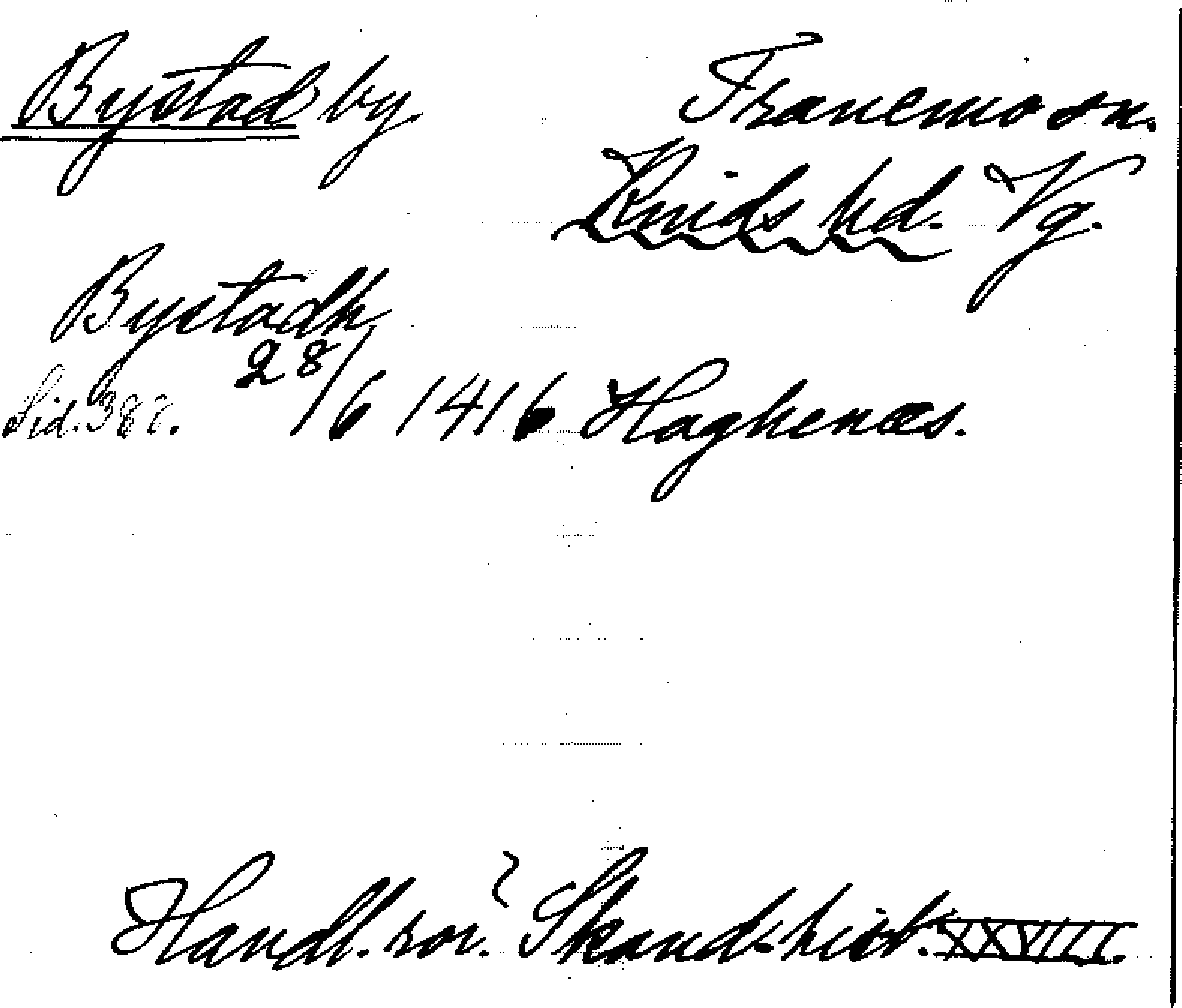 Bystad by. Tranemo sn.
Kinds hd. Vg.
Bystadh
Sid. 388. 28/6 1416 Haghenæs.
Handl. rör. Skand. hist. XXVIII.